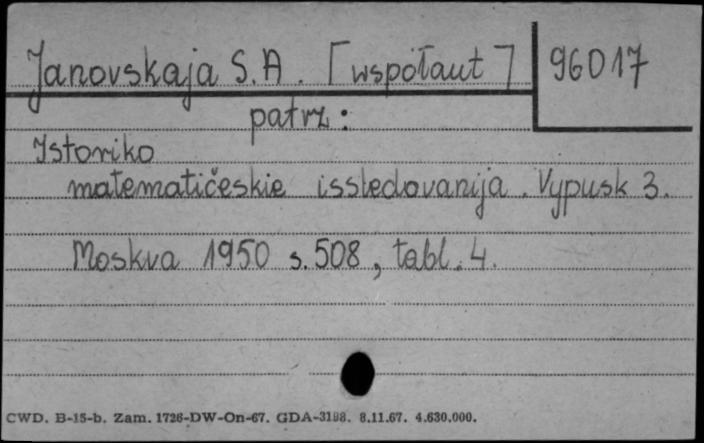 Janovskaja S.A. [współaut] 96017
patrz:
Istoriko
matematičeskie issledovanija. Vypusk 3.
Moskva 1950 s. 508, tabl. 4.
CWD. B-15-b. Zam. 1726-DW-On-67. GDA-3198. 8.11.67. 4.630.000.